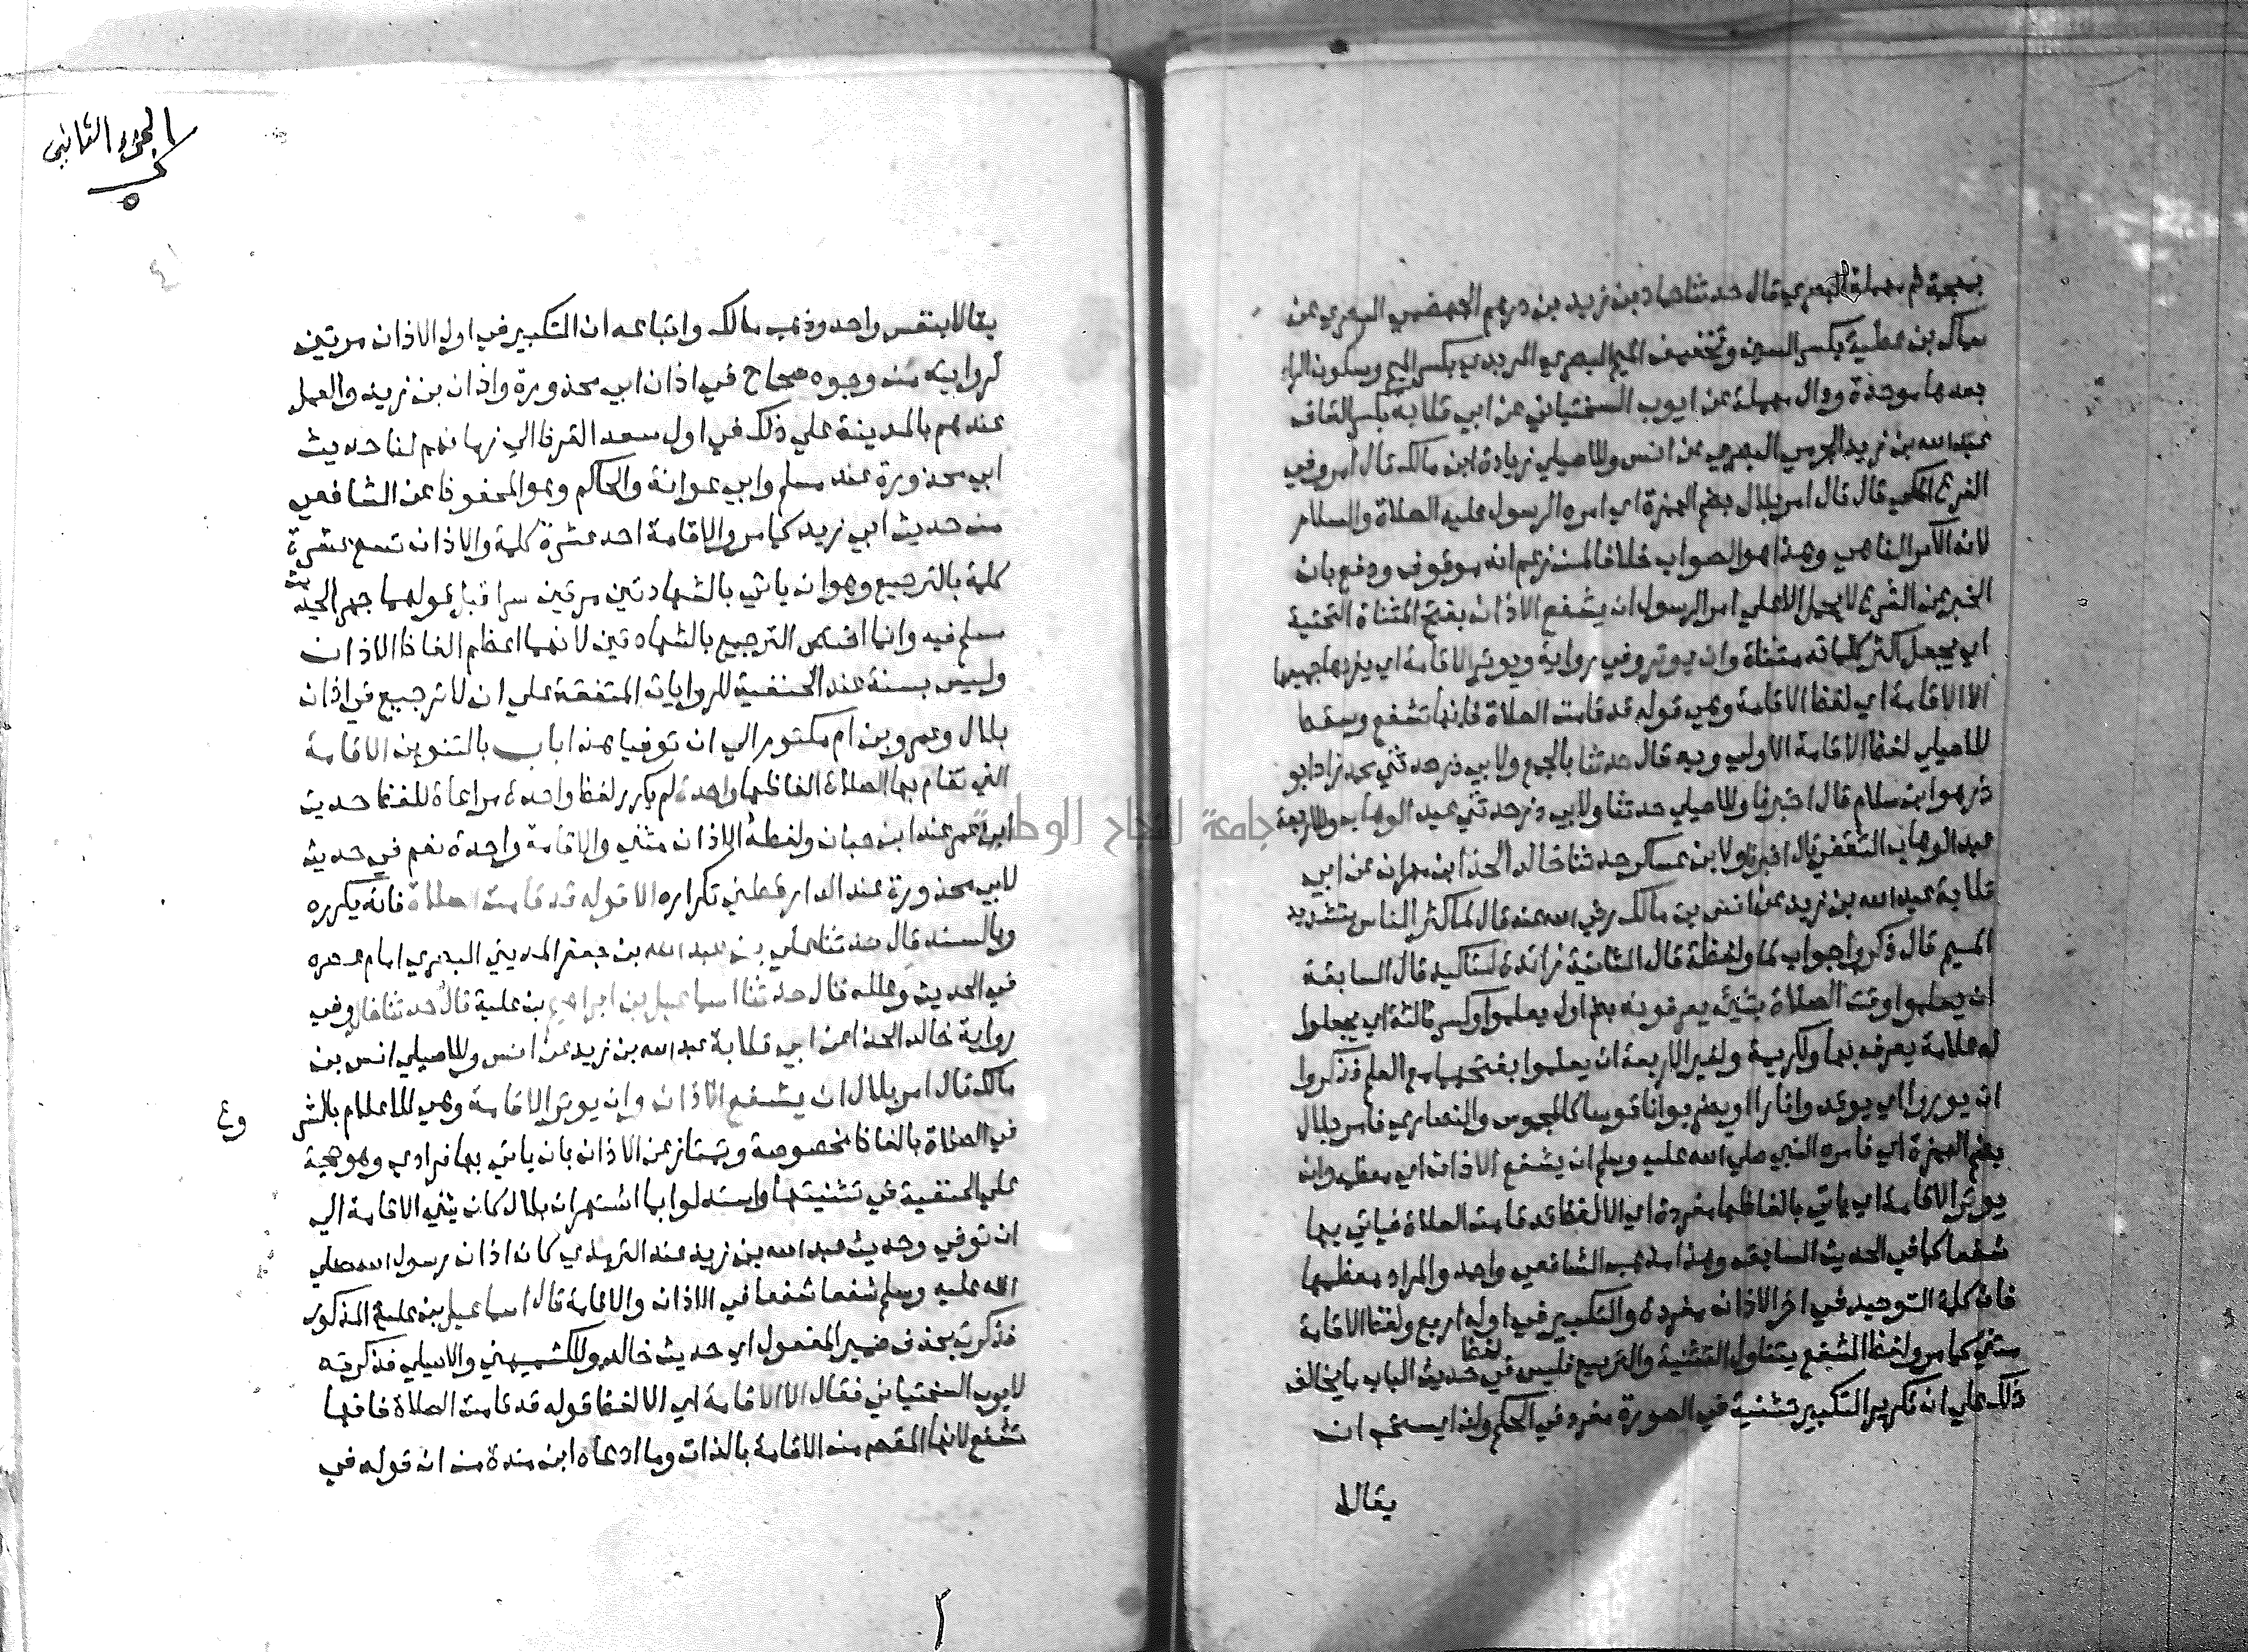 بمعجمة ثم مهملة البصري قال حدثنا حماد بن زيد بن درهم الجهضمي البصري عن
سماك بن عطية بكسر السين وتخفيف الميم البصري المربدي بكسر الميم وسكون الراء
بعدها موحدة ودال مهملة عن ايوب السختياني عن ابي قلابة بكسر القاف
عبد الله بن زيد الجرمي البصري عن انس وللاصيلي زيادة ابن مالك قال امر وفي
الفرع المكي قال قال امر بلال بضم الهمزة اي امره الرسول عليه الصلاة والسلام
لانه الآمر الناهي وهذا هو الصواب خلافا لمن زعم انه موقوف ودفع بان
الخبر عن الشرع لا يحمل الا علي امر الرسول ان يشفع الاذان بفتح المثناة التحتية
اي يجعل اكثر كلماته مثناة وان يوتر وفي رواية ويوتر الاقامة اي يفردها جميعها
الا الاقامة اي لفظ الاقامة وهي قوله قد قامت الصلاة فانها تشفع وسقط
للاصيلي لفظ الاقامة الاولي وبه قال حدثنا بالجمع ولابي ذر حدثني محمد زاد ابو
ذر هو ابن سلام قال اخبرنا وللاصيلي حدثنا ولابي ذر حدثني عبد الوهاب وللاربعة
عبد الوهاب الثقفي قال اخبرنا ولابن عساكر حدثنا خالد الحذا ابن مهران عن ابي
قلابة عبد الله بن زيد عن انس بن مالك رضي الله عنه قال لما كثر الناس بتشديد
الميم قال ذكروا جواب لما ولفظة قال الثانية زائدة لتاكيد قال السابقة
ان يعلموا وقت الصلاة بشيء يعرفونه بضم اول يعلموا وكسر ثالثه اي يجعلوا
له علامة يعرف بها ولكريمة ولغير الاربعة ان يعلموا بفتحهما من العلم فذكروا
ان يوروا اي يوقدوا نارا او يضربوا ناقوسا كالمجوس والنصاري فامر بلال
بضم الهمزة اي فامره النبي صلي الله عليه وسلم ان يشفع الاذان اي معظمه وان
يوتر الاقامة اي ياتي بالفاظها مفردة اي الا لفظ قد قامت الصلاة فياتي بها
شفعا كما في الحديث السابق وهذا مذهب الشافعي واحمد والمراد معظمها
فان كلمة التوحيد في اخر الاذان مفردة والتكبير في اوله اربع ولفظ الاقامة
مثني كما مر ولفظ الشفع يتناول التثنية والتربيع فليس في لفظ حديث الباب ما يخالف
ذلك علي ان تكرير التكبير تثنية في الصورة مفرد في الحكم ولذا يستحب ان
يقالا
الجزء الثاني
يقالا بنفس واحد وذهب مالك واتباعه ان التكبير في اول الاذان مرتين
لروايته من وجوه صحاح في اذان ابي محذورة واذان بن زيد والعمل
عندهم بالمدينة علي ذلك في اول سعد القرظ الي زمانهم لنا حديث
ابي محذورة عند مسلم وابي عوانة والحاكم وهو المحفوظ عن الشافعي
من حديث ابي زيد كما مر والاقامة احد عشرة كلمة والاذان تسع عشرة
كلمة بالترجيع وهو ان ياتي بالشهادتين مرتين سرا قبل قولهما جهرا لحديث
مسلم فيه وانما اختص الترجيع بالشهادتين لانهما اعظم الفاظ الاذان
وليس بسنة عند الحنفية للروايات المتفقة علي ان لا ترجيع في اذان
بلال وعمرو بن ام مكتوم الي ان توفيا هذا باب بالتنوين الاقامة
التي تقام بها الصلاة الفاظها واحدة لم يكرر لفظ واحدة مراعاة للفظ حديث
ابن عمر عند ابن حبان ولفظه الاذان مثني والاقامة واحدة نعم في حديث
لابي محذورة عند الدارقطني تكراره الا قوله قد قامت الصلاة فانه يكرره
وبالسند قال حدثنا علي بن عبد الله بن جعفر المديني البصري امام عصره
في الحديث وعلله قال حدثنا اسماعيل بن ابراهيم بن علية قال حدثنا خالد وفي
رواية خالد الحذا عن ابي قلابة عبد الله بن زيد عن انس وللاصيلي انس بن
مالك قال امر بلال ان يشفع الاذان وان يوتر الاقامة وهي للاعلام بالشر
وع
في الصلاة بالفاظ مخصوصة وتمتاز عن الاذان بان ياتي بها فرادي وهو حجة
علي الحنفية في تثنيتها واستدلوا بما اشتهر ان بلال كان يثني الاقامة الي
ان توفي وحديث عبد الله بن زيد عند الترمذي كان اذان رسول الله صلي
الله عليه وسلم شفعا شفعا في الاذان والاقامة قال اسماعيل بن علية المذكور
فذكرت بحذف ضمير المفعول اي حديث خالد وللكشميهني والاصيلي فذكرته
لايوب السختياني فقال الا الاقامة اي الا لفظ قوله قد قامت الصلاة فانها
تشفع لانها المقصد من الاقامة بالذات وما ادعاه ابن مندة من ان قوله في
جامعة النجاح الوطنية